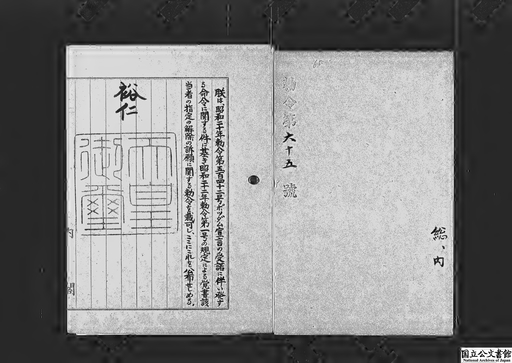 勅令第六十五號
総、内
朕は、昭和二十年勅令第五百四十二号ポツダム宣言の受諾に伴い発す
る命令に関する件に基き昭和二十二年勅令第一号の規定による覚書該
当者の指定の解除の訴願に関する勅令を裁可し、ここにこれを公布せしめる。
裕仁
天皇御璽
内閣
国立公文書館
National Archives of Japan